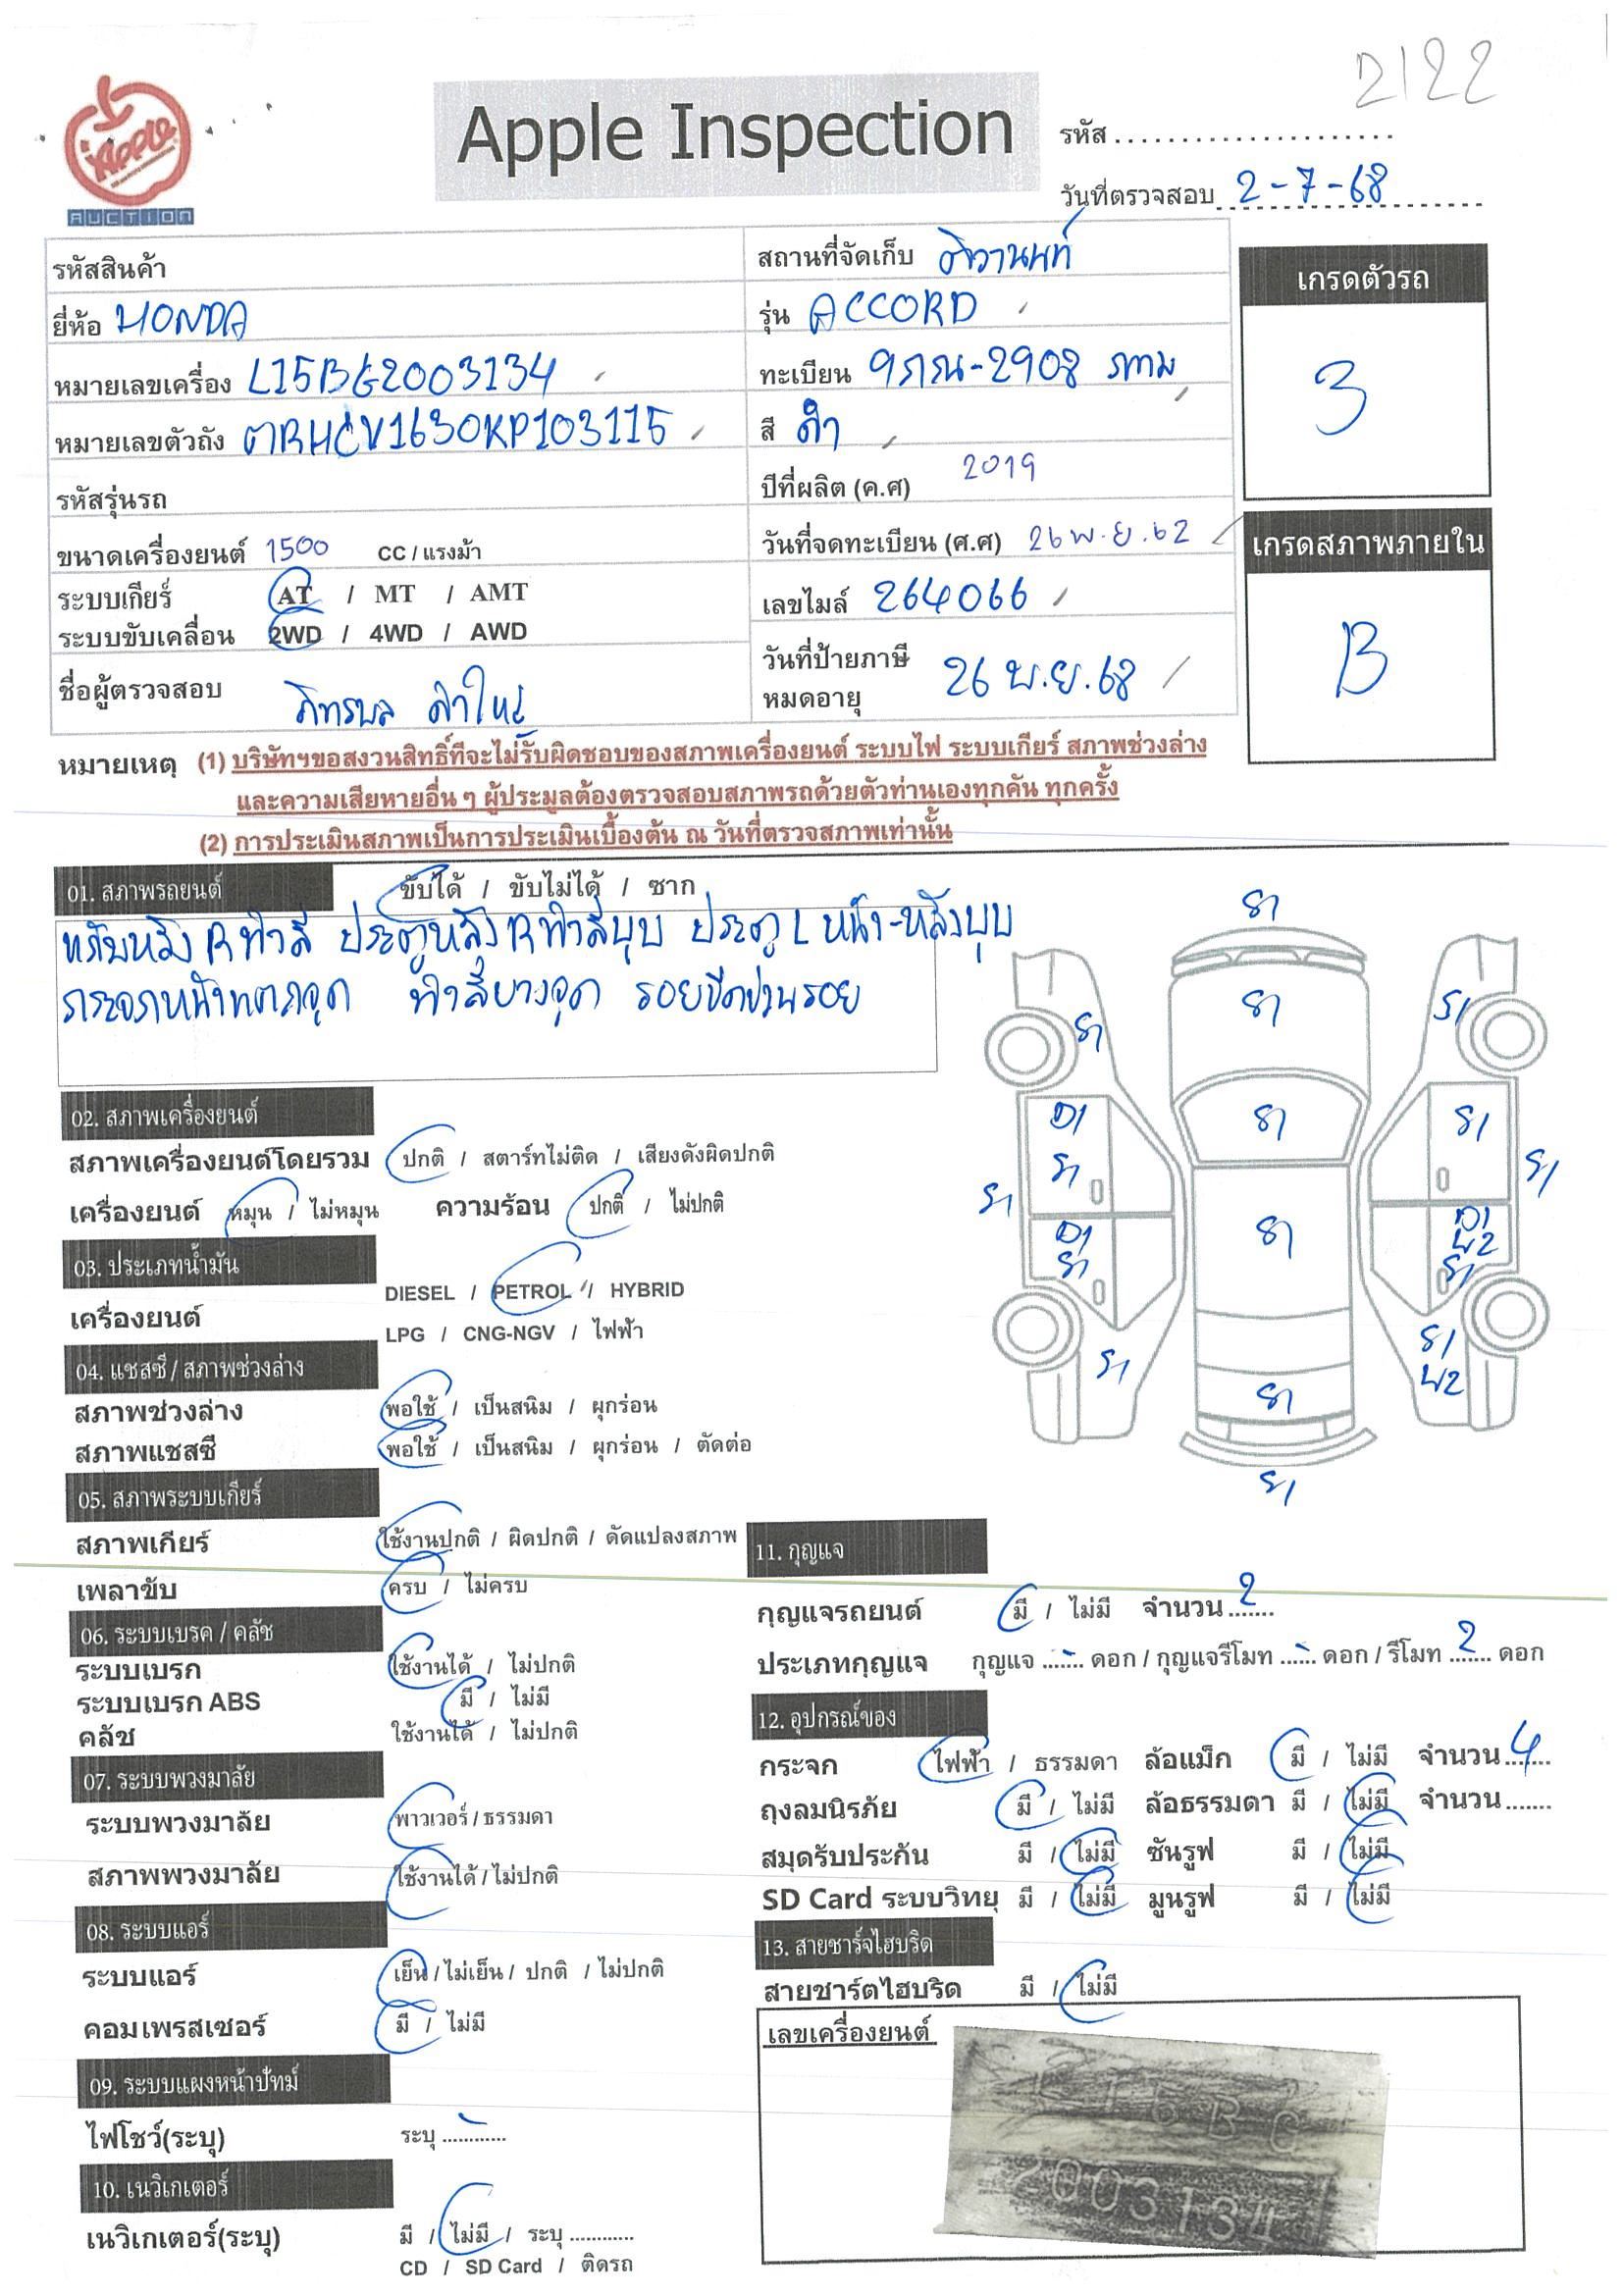 D122
Apple
AUCTION
Apple Inspection
รหัส ....................
วันที่ตรวจสอบ 2-7-68
รหัสสินค้า
สถานที่จัดเก็บ ติวานนท์
ยี่ห้อ HONDA
รุ่น ACCORD
เกรดตัวรถ
3
หมายเลขเครื่อง L15BG2003134
ทะเบียน 9กณ-2908 กทม
หมายเลขตัวถัง MRHCV1630KP103115
สี ดำ
รหัสรุ่นรถ
ปีที่ผลิต (ค.ศ) 2019
ขนาดเครื่องยนต์ 1500 CC / แรงม้า
วันที่จดทะเบียน (ศ.ศ) 26 พ.ย.62
เกรดสภาพภายใน
B
ระบบเกียร์ AT / MT / AMT
เลขไมล์ 264066
ระบบขับเคลื่อน 2WD / 4WD / AWD
ชื่อผู้ตรวจสอบ
วันที่ป้ายภาษีหมดอายุ 26 พ.ย.68
หมายเหตุ (1) บริษัทฯขอสงวนสิทธิ์ที่จะไม่รับผิดชอบของสภาพเครื่องยนต์ ระบบไฟ ระบบเกียร์ สภาพช่วงล่าง
และความเสียหายอื่น ๆ ผู้ประมูลต้องตรวจสอบสภาพรถด้วยตัวท่านเองทุกคัน ทุกครั้ง
(2) การประเมินสภาพเป็นการประเมินเบื้องต้น ณ วันที่ตรวจสภาพเท่านั้น
01. สภาพรถยนต์ ขับได้ / ขับไม่ได้ / ซาก
แก้มหลัง R ทำสี ประตูหลัง R ทำสีบุบ ประตู L หน้า-หลังบุบ
กระจกหน้าแตกจุด ทำสีบางจุด รอยขีดข่วนรอบ
02. สภาพเครื่องยนต์
สภาพเครื่องยนต์โดยรวม ปกติ / สตาร์ทไม่ติด / เสียงดังผิดปกติ
เครื่องยนต์ หมุน / ไม่หมุน ความร้อน ปกติ / ไม่ปกติ
03. ประเภทน้ำมัน
เครื่องยนต์ DIESEL / PETROL / HYBRID
LPG / CNG-NGV / ไฟฟ้า
04. แชสซี / สภาพช่วงล่าง
สภาพช่วงล่าง พอใช้ / เป็นสนิม / ผุกร่อน
สภาพแชสซี พอใช้ / เป็นสนิม / ผุกร่อน / ตัดต่อ
05. สภาพระบบเกียร์
สภาพเกียร์ ใช้งานปกติ / ผิดปกติ / ดัดแปลงสภาพ
เพลาขับ ครบ / ไม่ครบ
06. ระบบเบรค / คลัช
ระบบเบรก ใช้งานได้ / ไม่ปกติ
ระบบเบรก ABS มี / ไม่มี
คลัช ใช้งานได้ / ไม่ปกติ
07. ระบบพวงมาลัย
ระบบพวงมาลัย พาวเวอร์ / ธรรมดา
สภาพพวงมาลัย ใช้งานได้ / ไม่ปกติ
08. ระบบแอร์
ระบบแอร์ เย็น / ไม่เย็น / ปกติ / ไม่ปกติ
คอมเพรสเซอร์ มี / ไม่มี
09. ระบบแผงหน้าปัทม์
ไฟโชว์(ระบุ) ระบุ ............
10. เนวิเกเตอร์
เนวิเกเตอร์(ระบุ) มี / ไม่มี / ระบุ ............
CD / SD Card / ติดรถ
11. กุญแจ
กุญแจรถยนต์ มี / ไม่มี จำนวน 2
ประเภทกุญแจ กุญแจ ...-... ดอก / กุญแจรีโมท ...-... ดอก / รีโมท 2 ดอก
12. อุปกรณ์ของ
กระจก ไฟฟ้า / ธรรมดา ล้อแม็ก มี / ไม่มี จำนวน 4
ถุงลมนิรภัย มี / ไม่มี ล้อธรรมดา มี / ไม่มี จำนวน.......
สมุดรับประกัน มี / ไม่มี ซันรูฟ มี / ไม่มี
SD Card ระบบวิทยุ มี / ไม่มี มูนรูฟ มี / ไม่มี
13. สายชาร์จไฮบริด
สายชาร์ตไฮบริด มี / ไม่มี
เลขเครื่องยนต์
L15BG
2003134